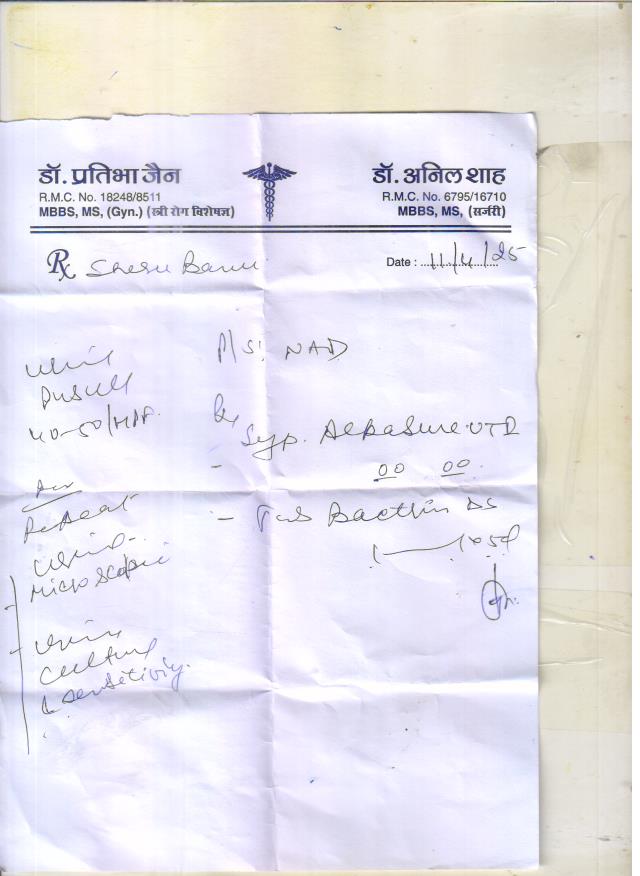 डॉ. प्रतिभा जैन
R.M.C. No. 18248/8511
MBBS, MS, (Gyn.) (स्त्री रोग विशेषज्ञ)
डॉ. अनिल शाह
R.M.C. No. 6795/16710
MBBS, MS, (सर्जरी)
Rx
Date : 11/4/25
P/S: NAD
Urine
Pus cell
40-50/HPF
Syp. Alkasure-UTI
Adv
Repeat
Urine
Microscopic
- Tab Bacthin DS
1 1 x 5d
- Urine
Culture
& Sensitivity.